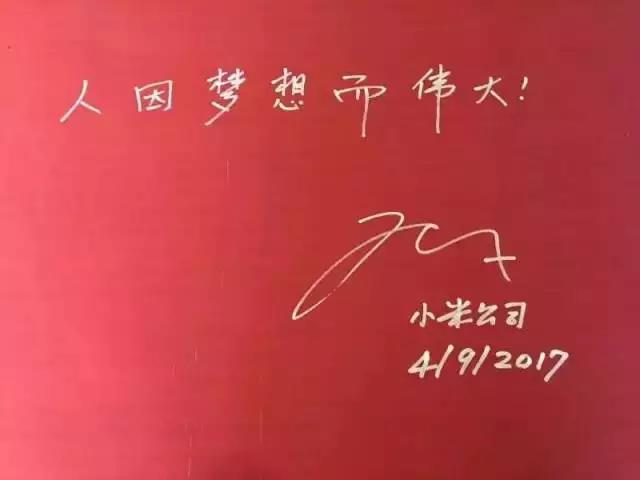 人因梦想而伟大!
小米公司
4/9/2017